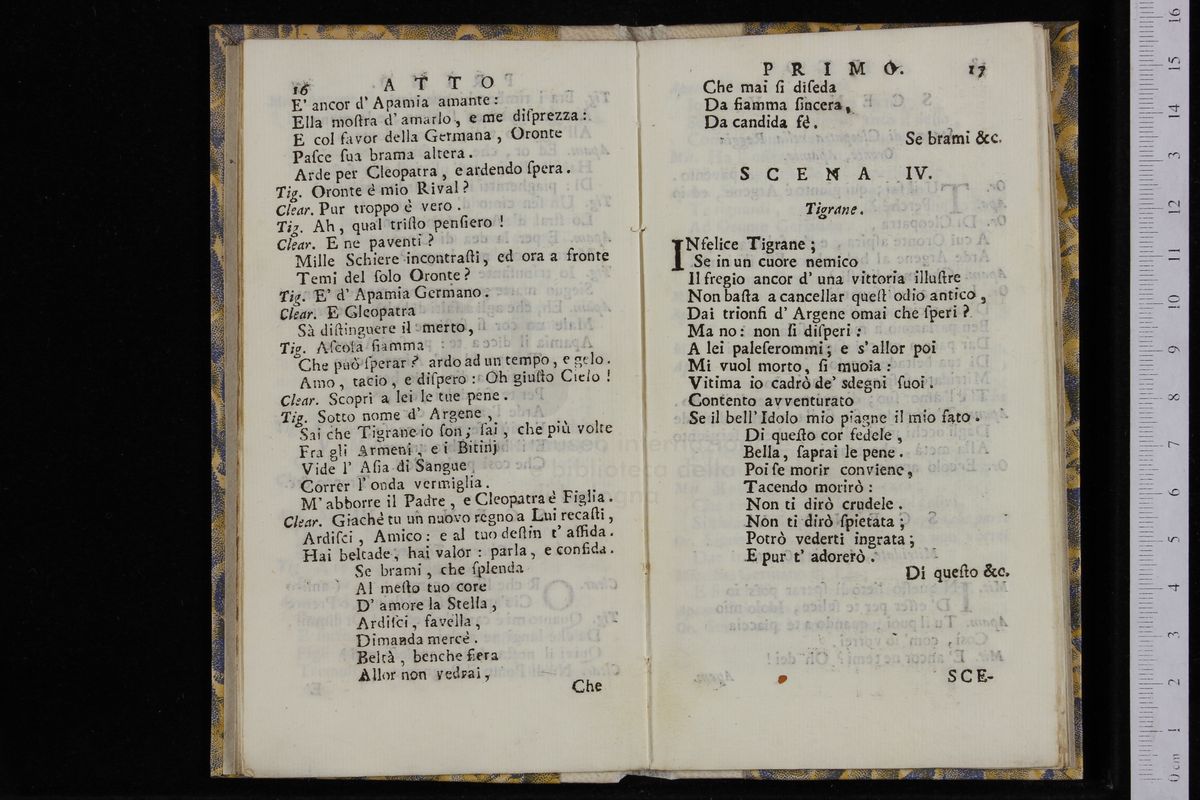 16 ATTO
E' ancor d' Apamia amante:
Ella moſtra d' amarlo, e me diſprezza:
E col favor della Germana, Oronte
Paſce ſua brama altera.
Arde per Cleopatra, e ardendo ſpera.
Tig. Oronte è mio Rival?
Clear. Pur troppo è vero.
Tig. Ah, qual triſto penſiero!
Clear. E ne paventi?
Mille Schiere incontraſti, ed ora a fronte
Temi del ſolo Oronte?
Tig. E' d' Apamia Germano.
Clear. E Gleopatra
Sà diſtinguere il merto,
Tig. Aſcoſa fiamma
Che può ſperar? ardo ad un tempo, e gelo.
Amo, tacio, e diſpero: Oh giuſto Cielo!
Clear. Scopri a lei le tue pene.
Tig. Sotto nome d' Argene,
Sai che Tigrane io ſon; ſai, che più volte
Fra gli Armeni, e i Bitinj
Vide l' Aſia di Sangue
Correr l' onda vermiglia.
M' abborre il Padre, e Cleopatra è Figlia.
Clear. Giachè tu un nuovo regno a Lui recaſti,
Ardiſci, Amico: e al tuo deſtin t' affida.
Hai beltade, hai valor: parla, e confida.
Se brami, che ſplenda
Al meſto tuo core
D' amore la Stella,
Ardiſci, favella,
Dimanda mercè.
Beltà, benche fiera
Allor non vedrai,
Che
PRIMO. 17
Che mai ſi diſeda
Da fiamma ſincera,
Da candida fè.
Se brami &c.
SCENA IV.
Tigrane.
INfelice Tigrane;
Se in un cuore nemico
Il fregio ancor d' una vittoria illuſtre
Non baſta a cancellar queſt' odio antico,
Dai trionfi d' Argene omai che ſperi?
Ma no: non ſi diſperi:
A lei paleſerommi; e s' allor poi
Mi vuol morto, ſi muoia:
Vitima io cadrò de' sdegni ſuoi.
Contento avventurato
Se il bell' Idolo mio piagne il mio fato.
Di queſto cor fedele,
Bella, ſaprai le pene.
Poi ſe morir conviene,
Tacendo morirò:
Non ti dirò crudele.
Non ti dirò ſpietata;
Potrò vederti ingrata;
E pur t' adorerò.
Di queſto &c.
SCE-